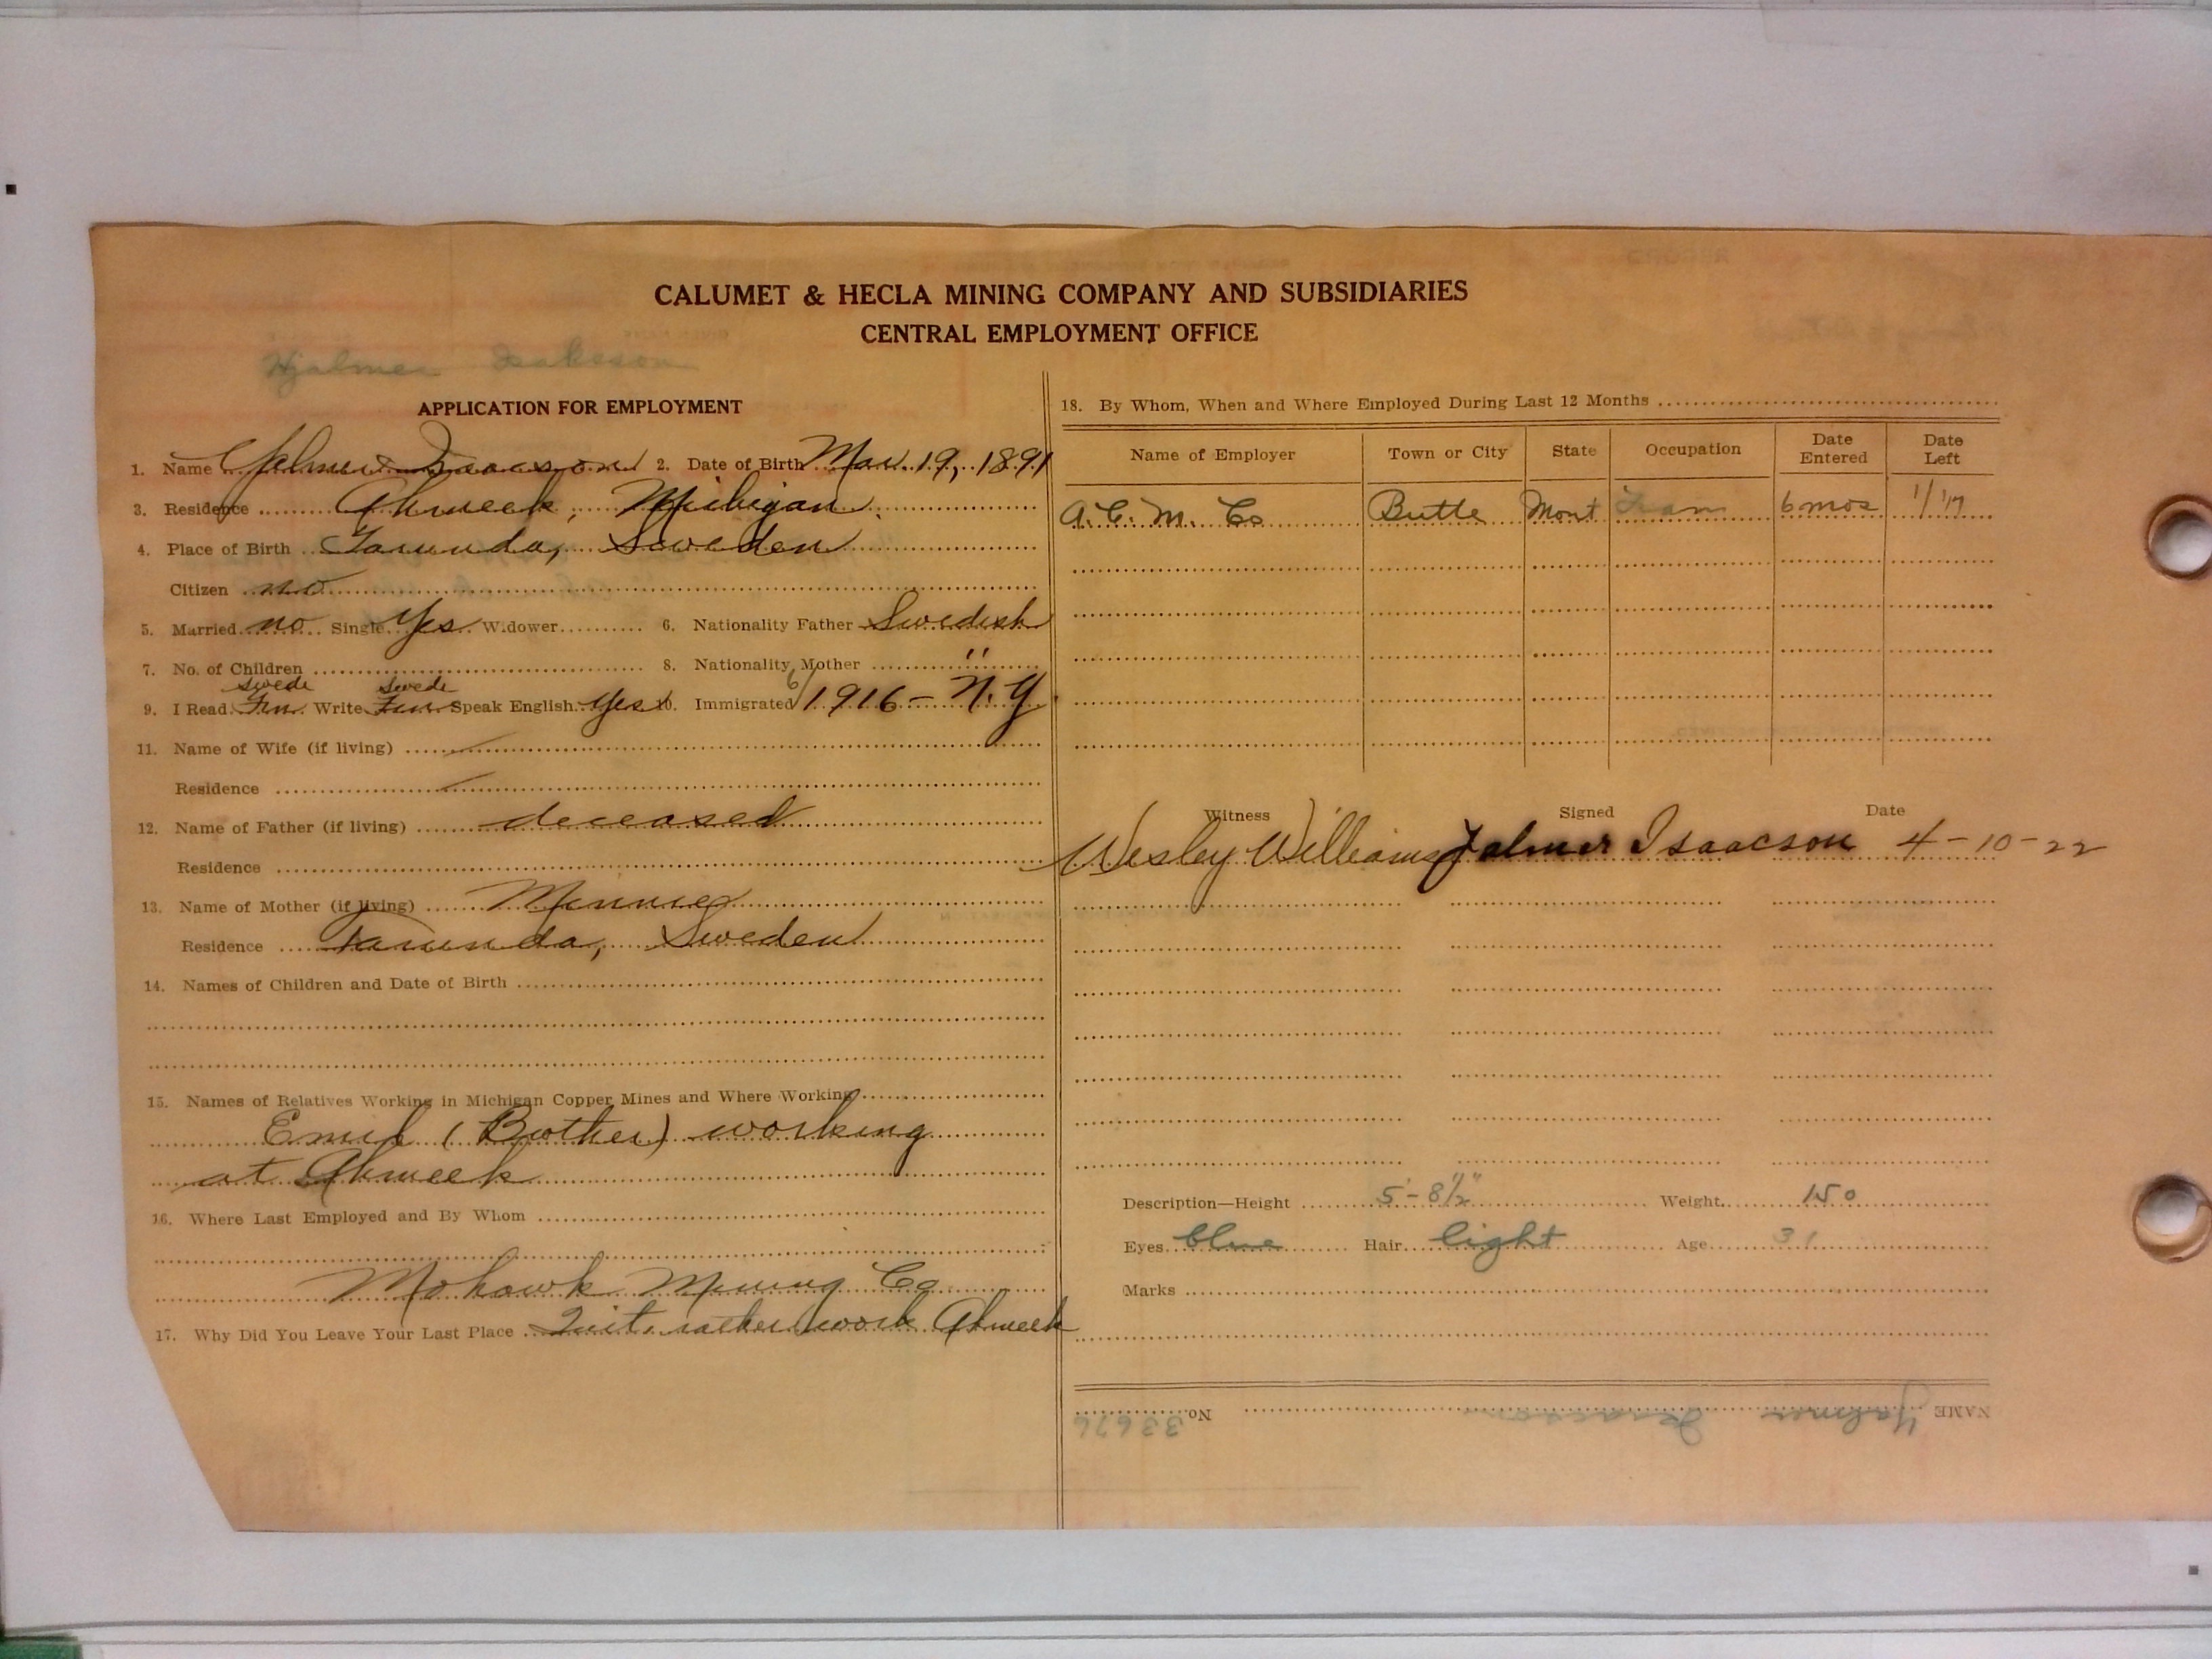 CALUMET & HECLA MINING COMPANY AND SUBSIDIARIES
CENTRAL EMPLOYMENT OFFICE
Hjalmer Isakson
APPLICATION FOR EMPLOYMENT
1. Name Yalmer Isaacson 2. Date of Birth Mar. 19, 1891
3. Residence Ahmeek, Michigan
4. Place of Birth Sweden
Citizen no
5. Married no Single Yes Widower
6. Nationality Father Swedish
7. No. of Children
8. Nationality Mother "
Swede Swede
9. I Read Fin. Write Finn Speak English Yes 10. Immigrated 6/1916 - N.Y.
11. Name of Wife (if living)
Residence
12. Name of Father (if living) deceased
Residence
13. Name of Mother (if living) Minnie
Residence Sweden
14. Names of Children and Date of Birth
15. Names of Relatives Working in Michigan Copper Mines and Where Working
Emil (Brother) working
at Ahmeek
16. Where Last Employed and By Whom
Mohawk Mining Co
17. Why Did You Leave Your Last Place Quit. rather work Ahmeek
18. By Whom, When and Where Employed During Last 12 Months
Name of Employer Town or City State Occupation Date Entered Date Left
A. C. M. Co Butte Mont Tram 6 mos 1/17
Witness Signed Date
Wesley Williams Jalmer Isaacson 4-10-22
Description—Height 5'-8½" Weight 150
Eyes blue Hair light Age 31
Marks
NAME Yalmer Isaacson No. 33676